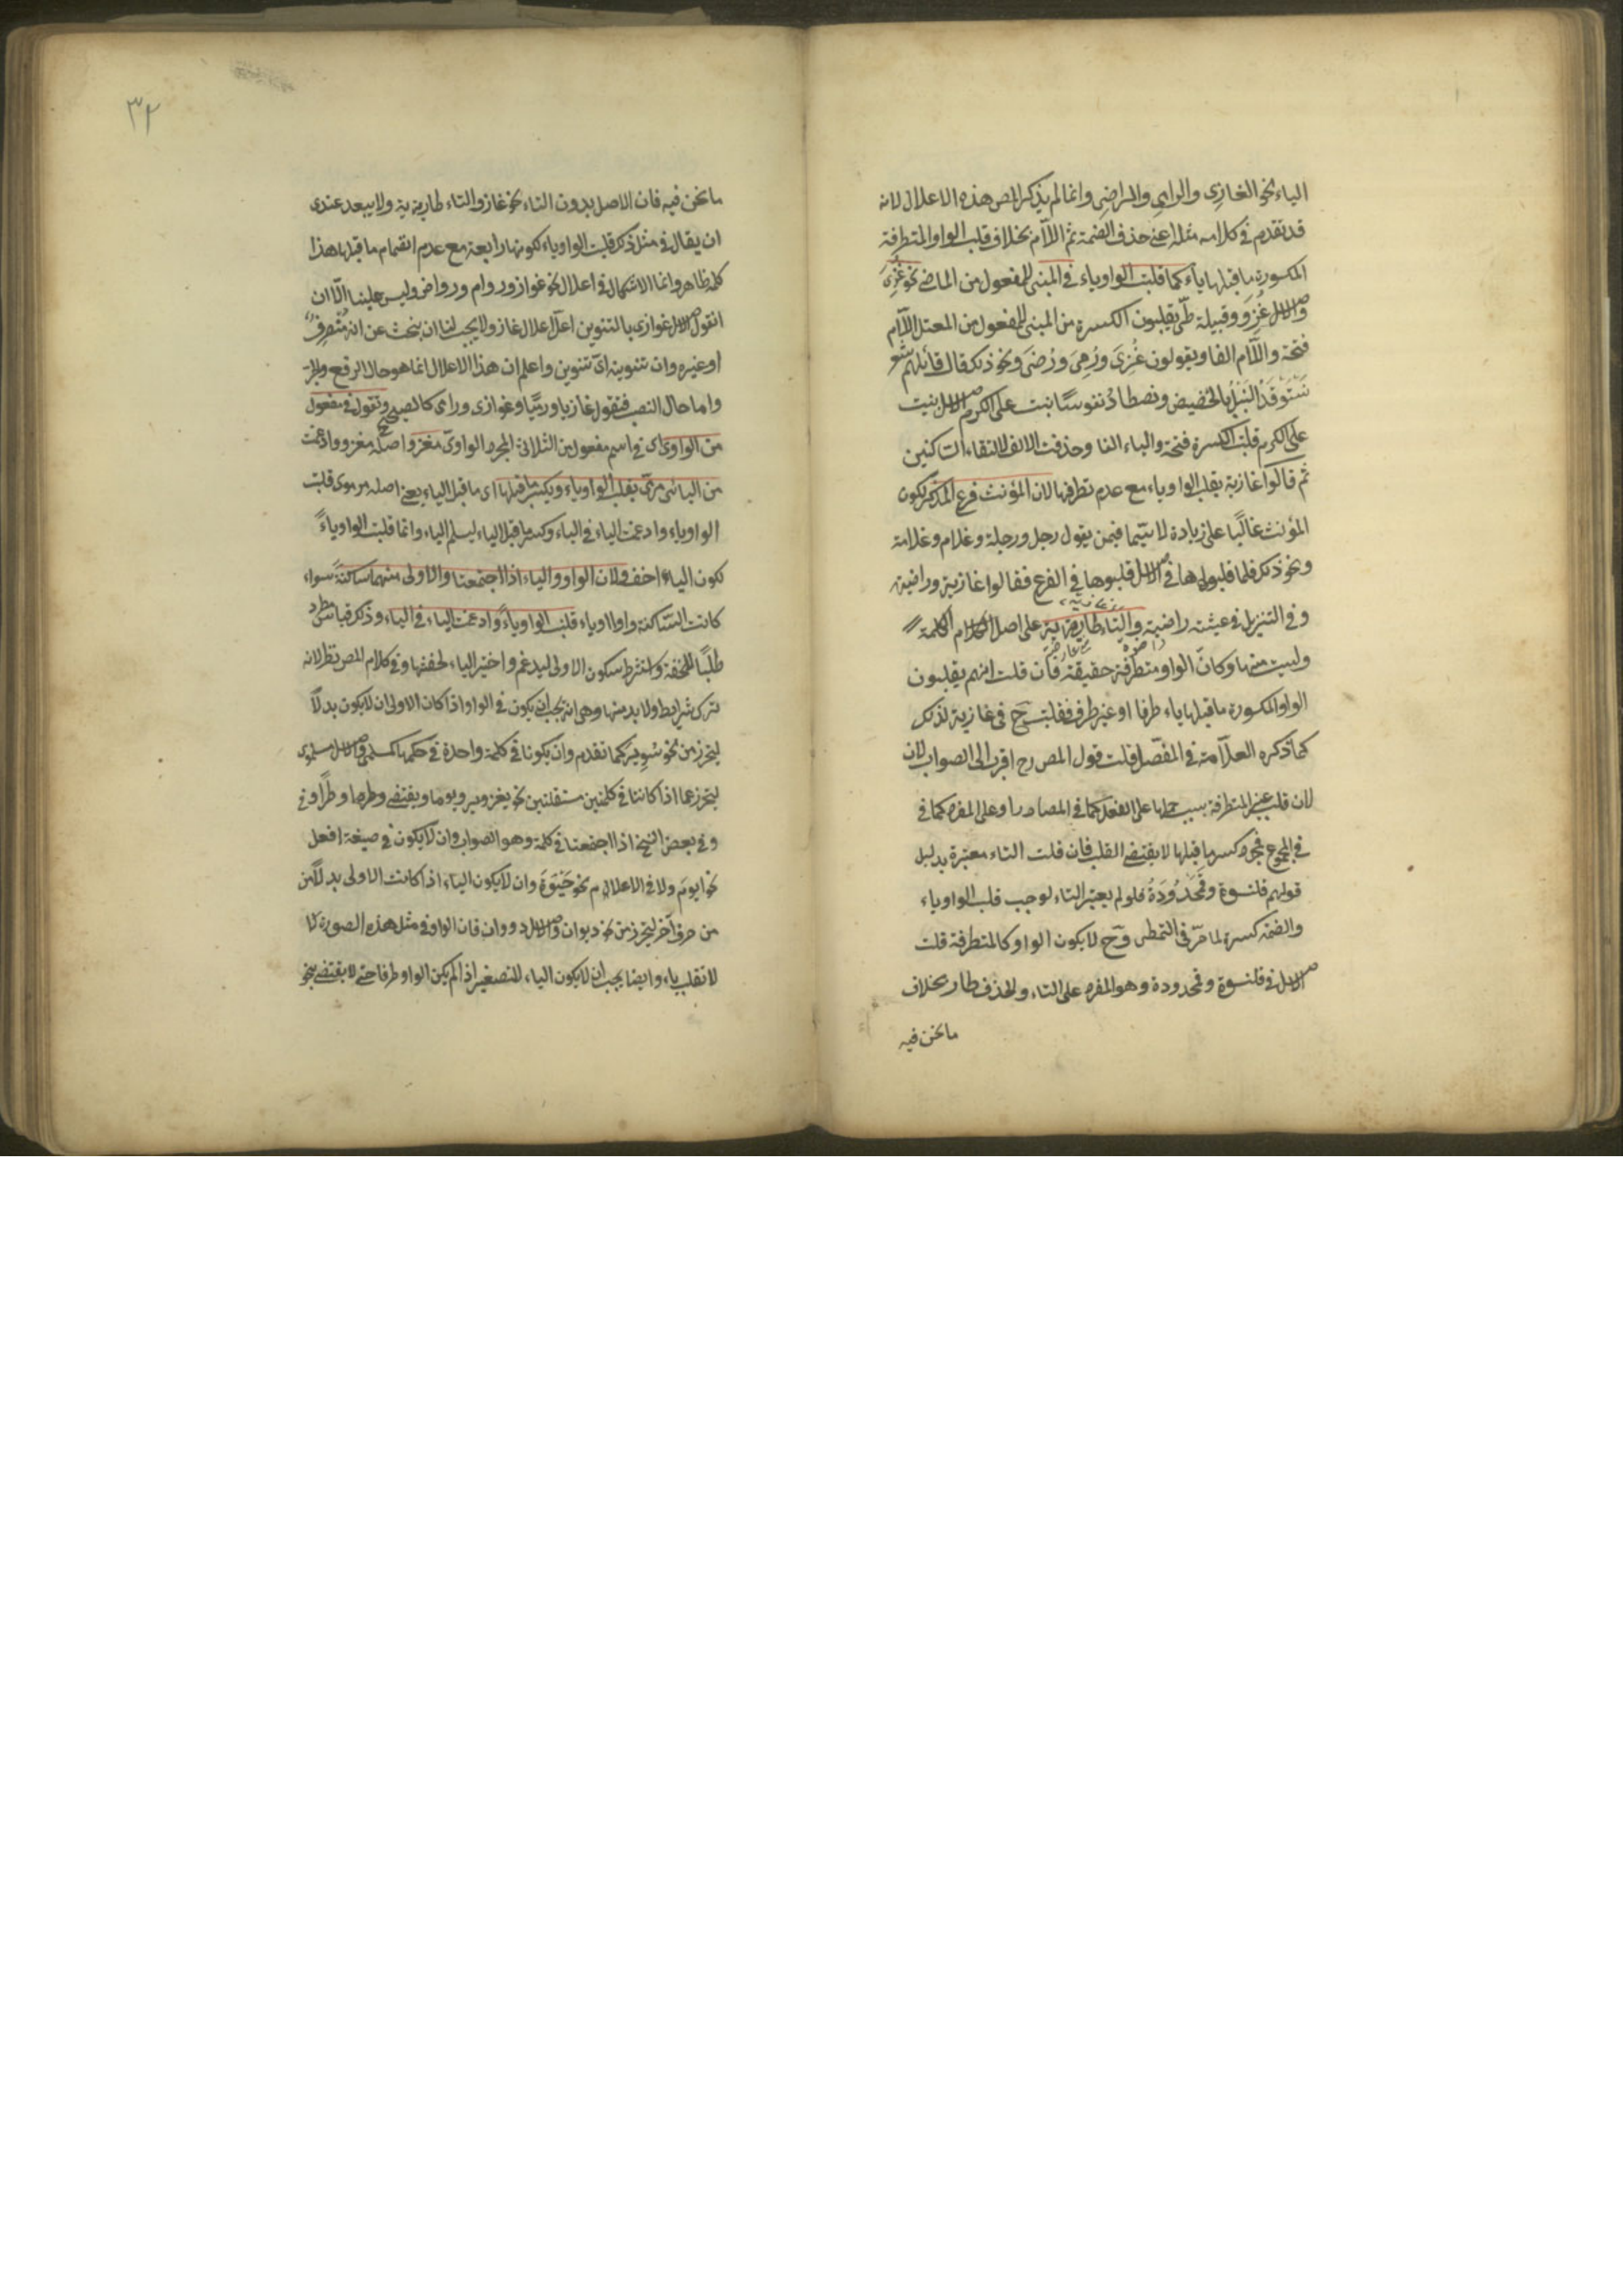 الياء نحو الغازي والرامي والراضي وانما لم يذكر المص هذه الاعلال لانه
قد تقدم في كلامه مثله اعني حذف الضمة ثم اللام بخلاف قلب الواو المتطرفة
المكسورة ما قبلها ياء كما قلبت الواو ياء في المبني للمفعول من الماضي نحو غُزِيَ
والاصل غُزِوَ وقبيلة طيّ يقلبون الكسرة من المبني للمفعول من المعتل اللام
فتحة واللام الفا ويقولون غُزَى ورُمَى ورُضَى ونحو ذلك قال قائلهم شعر
نَسْتَوْقِدُ النَّبْلَ بالحضيض ونصطاد نفوسًا بنت على الكرم الاصل بنيت
على الكرم قلبت الكسرة فتحة والياء الفا وحذفت الالف لالتقاء الساكنين
ثم قالوا غازية بقلب الواو ياء مع عدم تطرفها لان المؤنث فرع المذكر لكون
المؤنث غالبًا على زيادة لا سيّما فيمن يقول رجل ورجلة وغلام وغلامة
ونحو ذلك فلما قلبوها في الاصل قلبوها في الفرع فقالوا غازية وراضية
وفي التنزيل في عيشة راضية والتاء طارية على اصل الكلمة
وليست منها وكانّ الواو متطرفة حقيقة فان قلت انهم يقلبون
الواو المكسورة ما قبلها ياء طرفا او غير طرف فقلبت ح في غازية لذلك
كما ذكره العلّامة في المفصّل قلت قول المص رح اقرب الى الصواب لان
لان قلب غير المتطرفة بسبب حملها على الفعل كما في المصادر او على المفرد كما في
في الجموع فمجرد كسر ما قبلها لا يقتضي القلب فان قلت التاء معتبرة بدليل
قولهم قلنسوة وقمحدوة فلو لم يعتبر التاء لوجب قلب الواو ياء
والضمة كسرة لما مرّ في التمطي وح لا يكون الواو كالمتطرفة قلت
الاصل في قلنسوة وقمحدوة وهو المفرد على التاء والحذف طار بخلاف
ما نحن فيه
٣٢
ما نحن فيه فان الاصل بدون التاء نحو غاز والتاء طارية ولا يبعد عندي
ان يقال في مثل ذلك قلبت الواو ياء لكونها رابعة مع عدم انضمام ما قبلها هذا
كله ظاهر وانما الاشكال في اعلال نحو غواز وروام ورواض وليس علينا الّا ان
نقول الاصل غوازي بالتنوين اعلّ اعلال غاز ولا يجب لنا ان نبحث عن انه منصرف
او غيره وان تنوينه ايّ تنوين واعلم ان هذا الاعلال انما هو حال الرفع والجر
واما حال النصب فنقول غازيا وراميًا وغوازي وروامي كالصحيح ونقول في مفعول
من الواوي اي في اسم مفعول من الثلاثي المجرد الواوي مغزو اصله مغزوو ادغمت
من اليائي مرميّ بقلب الواو ياء وبكسر ما قبلها اي ما قبل الياء يعني اصله مرموي قلبت
الواو ياء وادغمت الياء في الياء وكسر ما قبل الياء ليسلم الياء وانما قلبت الواو ياءً
لكون الياء اخف ولان الواو والياء اذا اجتمعتا والاولى منهما ساكنة سواء
كانت الساكنة واوا او ياء قلبت الواو ياءً وادغمت الياء في الياء وذلك قياس مطرد
طلبًا للخفة واشترط سكون الاولى ليدغم واختير الياء لخفتها وفي كلام المص نظر لانه
ترك شرايط ولا بد منها وهي انه يجب ان يكون في الواو اذا كان الاولى ان لا يكون بدلًا
ليحترز من نحو سوير كما تقدم وان يكونا في كلمة واحدة او في حكمها كمسلمي والاصل مسلموي
ليحترز عما اذا كانتا في كلمتين مستقلتين نحو يغزو يوما ويقضي وطرا وفي
وفي بعض النسخ اذا اجتمعتا في كلمة وهو الصواب وان لا يكون في صيغة افعل
نحو ايوم ولا في الاعلام نحو حَيْوَة وان لا يكون الياء اذا كانت الاولى بدلًا من
من حرف آخر ليحترز من نحو ديوان والاصل دووان فان الواو في مثل هذه الصورة
لا تقلب ياء وايضا يجب ان لا يكون الياء للتصغير اذا لم يكن الواو طرفا حتى لا ينتقض نحو